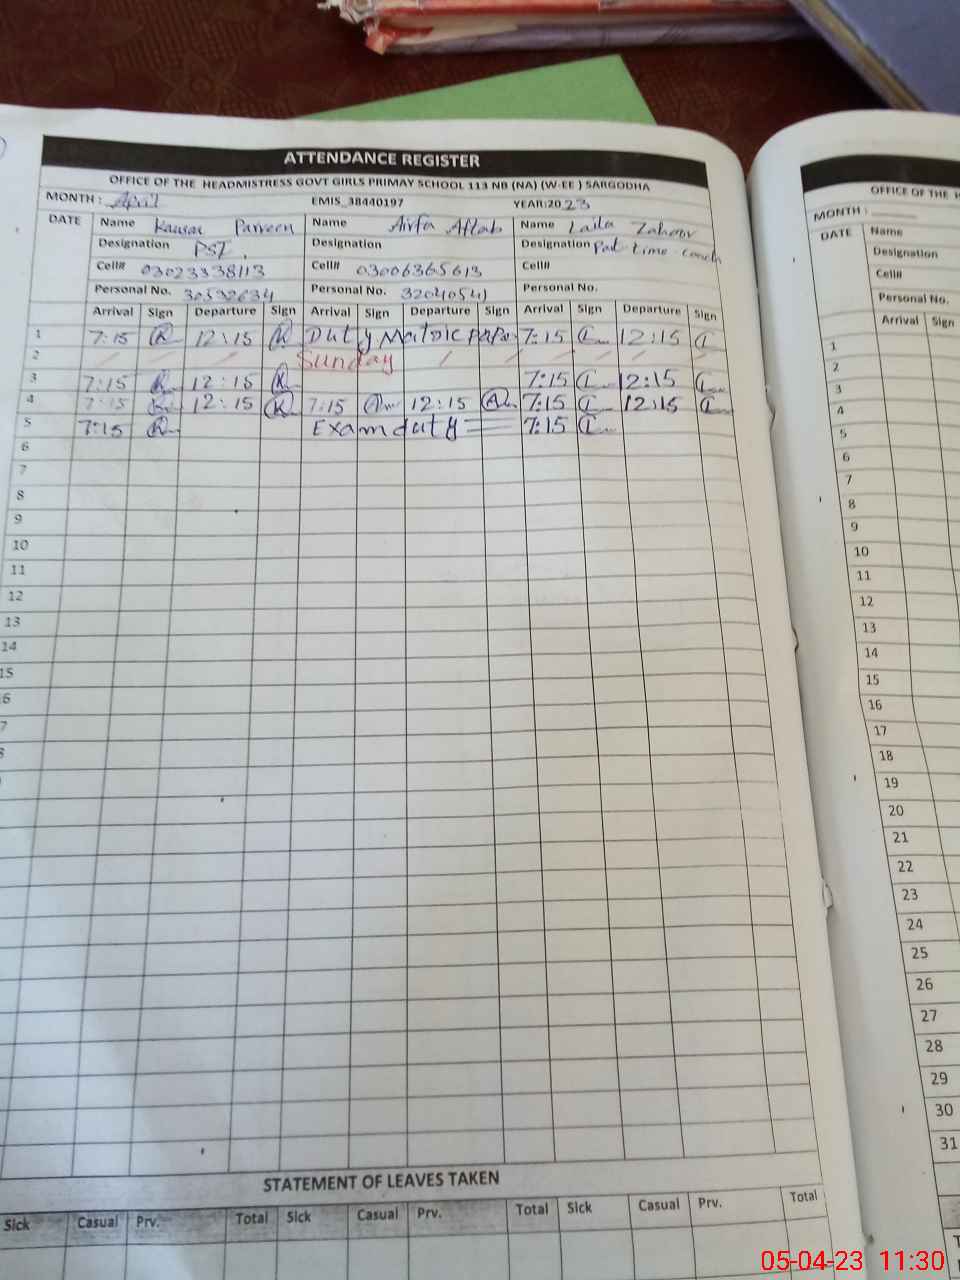 ATTENDANCE REGISTER
OFFICE OF THE HEADMISTRESS GOVT GIRLS PRIMAY SCHOOL 113 NB (NA) (W-EE ) SARGODHA
MONTH : April EMIS_38440197 YEAR:2023
DATE Name Kausar Parveen Name Airfa Aftab Name Laila Zahoor
Designation PST. Designation Designation Part time coach
Cell# 03023338113 Cell# 03006365613 Cell#
Personal No. 30592634 Personal No. 32040541 Personal No.
Arrival Sign Departure Sign Arrival Sign Departure Sign Arrival Sign Departure Sign
1 7:15 12:15 Duty Matric 7:15 12:15
2 Sunday
3 7:15 12:15 7:15 12:15
4 7:15 12:15 7:15 12:15 7:15 12:15
5 7:15 Exam duty 7:15
6
7
8
9
10
11
12
13
14
15
6
7
STATEMENT OF LEAVES TAKEN
Sick Casual Prv. Total Sick Casual Prv. Total Sick Casual Prv. Total
OFFICE OF THE
MONTH :
DATE Name
Designation
Cell#
Personal No.
Arrival Sign
1
2
3
4
5
6
7
8
9
10
11
12
13
14
15
16
17
18
19
20
21
22
23
24
25
26
27
28
29
30
31
05-04-23 11:30